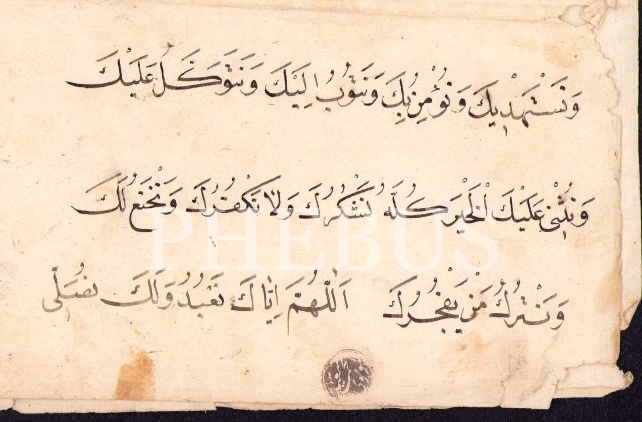 وَنَسْتَهْدِيكَ وَنُؤْمِنُ بِكَ وَنَتُوبُ اِلَيْكَ وَنَتَوَكَّلُ عَلَيْكَ
وَنُثْنِى عَلَيْكَ الْخَيْرَ كُلَّهُ نَشْكُرُكَ وَلَا نَكْفُرُكَ وَنَخْنَعُ لَكَ
وَنَتْرُكُ مَنْ يَفْجُرُكَ اَللّٰهُمَّ اِيَّاكَ نَعْبُدُ وَلَكَ نُصَلّى
PHEBUS